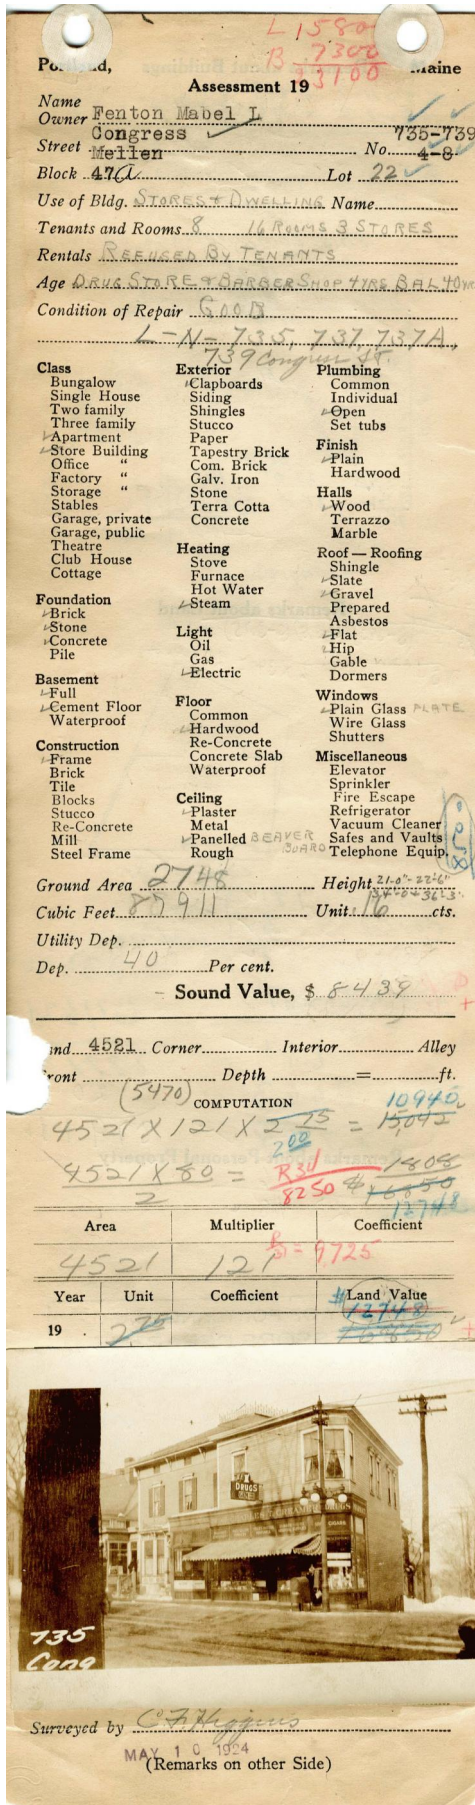 L 15800
B 7300
23100
Portland, Maine
Assessment 19
Name
Owner Fenton Mabel L
Congress 735-739
Street Mellen No. 4-8
Block 47A Lot 22
Use of Bldg. STORES & DWELLING Name
Tenants and Rooms 8 16 ROOMS 3 STORES
Rentals REFUSED BY TENANTS
Age DRUG STORE & BARBER SHOP 4 YRS BAL 40 YRS
Condition of Repair GOOD
L-N- 735, 737, 737A,
739 Congress St.
Class
Bungalow
Single House
Two family
Three family
✓Apartment
✓Store Building
Office "
Factory "
Storage "
Stables
Garage, private
Garage, public
Theatre
Club House
Cottage
Foundation
✓Brick
✓Stone
✓Concrete
Pile
Basement
✓Full
✓Cement Floor
Waterproof
Construction
✓Frame
Brick
Tile
Blocks
Stucco
Re-Concrete
Mill
Steel Frame
Exterior
✓Clapboards
Siding
Shingles
Stucco
Paper
Tapestry Brick
Com. Brick
Galv. Iron
Stone
Terra Cotta
Concrete
Heating
Stove
Furnace
Hot Water
✓Steam
Light
Oil
Gas
✓Electric
Floor
Common
✓Hardwood
Re-Concrete
Concrete Slab
Waterproof
Ceiling
✓Plaster
Metal
✓Panelled BEAVER BOARD
Rough
Plumbing
Common
Individual
✓Open
Set tubs
Finish
✓Plain
Hardwood
Halls
✓Wood
Terrazzo
Marble
Roof — Roofing
Shingle
✓Slate
✓Gravel
Prepared
Asbestos
✓Flat
✓Hip
Gable
Dormers
Windows
✓Plain Glass PLATE
Wire Glass
Shutters
Miscellaneous
Elevator
Sprinkler
Fire Escape
Refrigerator
Vacuum Cleaner
Safes and Vaults
Telephone Equip.
Ground Area 2748 Height 21-0"-22-6"
34-0 & 36-3"
Cubic Feet 87911 Unit 16 cts.
Utility Dep.
Dep. 40 Per cent.
Sound Value, $ 8439
nd 4521 Corner Interior Alley
ront Depth = ft.
(5470)
COMPUTATION 10940
4521 X 121 X 2 75 = 15,042
2 00
4521 X 80 = R34 1808
2 8250 $16850
12748
Area Multiplier Coefficient
4521 121 = 9725
Year Unit Coefficient Land Value
$12748
19 2 75 16850
DRUGS
DRUGS
CIGARS
735
Cong
Surveyed by C F Higgins
MAY 10 1924
(Remarks on other Side)